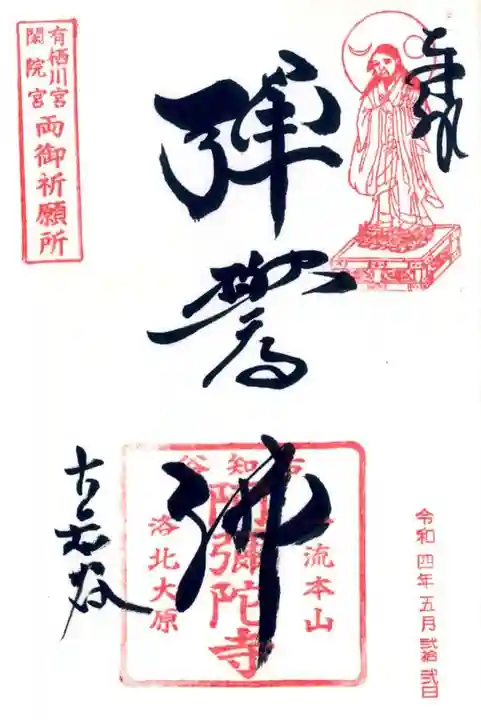 奉拝
有栖川宮
閑院宮
両御祈願所
弾誓佛
古知谷
古知谷
一流本山
阿彌陀寺
洛北大原
令和四年五月弐拾弐日